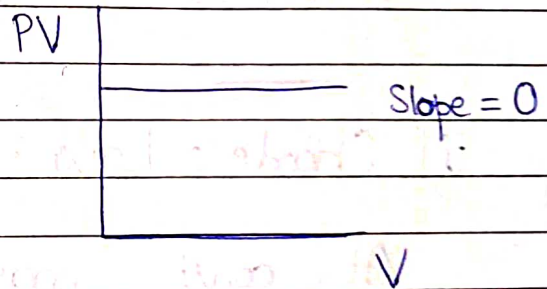 PV
Slope = 0
V